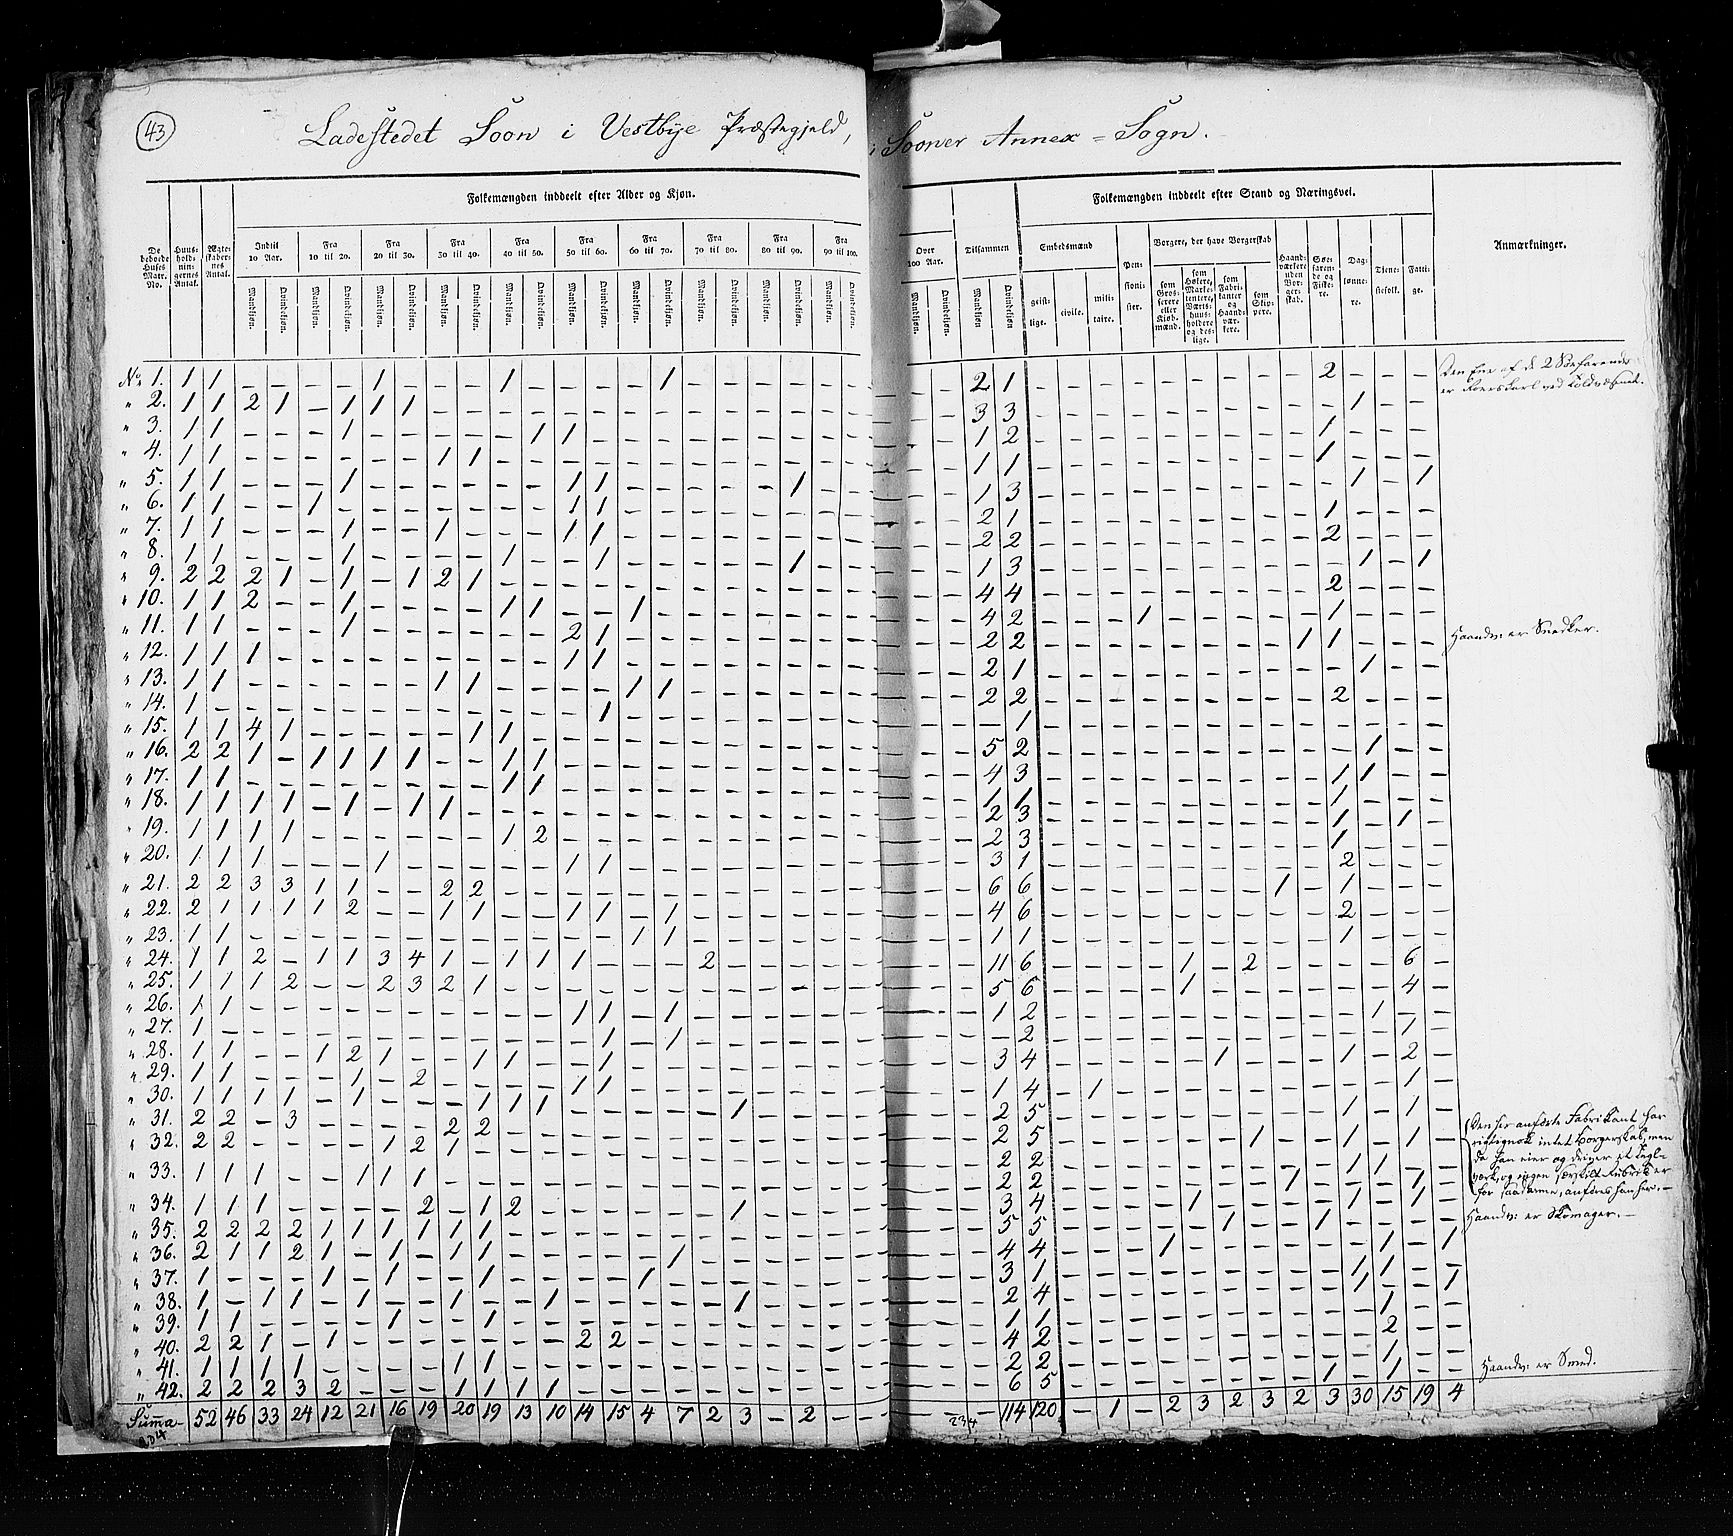 43
Ladestedet Soon i Vestbye Præstegjeld, i Sooner Annex-Sogn.
Folkemængden inddeelt efter Alder og Kjøn.
Folkemængden inddeelt efter Stand og Næringsvei.
De beboede Huses Matr. No.
Huusholdningernes Antal.
Ægteskabernes Antal.
Indtil 10 Aar.
Fra 10 til 20.
Fra 20 til 30.
Fra 30 til 40.
Fra 40 til 50.
Fra 50 til 60.
Fra 60 til 70.
Fra 70 til 80.
Fra 80 til 90.
Fra 90 til 100.
Over 100 Aar.
Tilsammen
Mandkjøn. Qvindekjøn.
Embedsmænd
geistlige. civile. militaire.
Pensionister.
Borgere, der have Borgerskab
som Grosserere eller Kjøbmænd.
som Høkere, Marketentere, Værtshuusholdere og deslige.
som Fabrikanter og Haandværkere.
som Skippere.
Haandværkere uden Borgerskab.
Søefarende og Fiskere.
Daglønnere.
Tjenestefolk.
Fattige.
Anmærkninger.
No. 1. 1 1 – – – – 1 – – – 1 – – – – 1 – – – – – – – – 2 1 – – – – – – – – – 2 – – – Den Ene af de 2 Søefarende
" 2. 1 1 2 1 – 1 1 1 3 3 1
" 3. 1 1 – – – 1 – – – – – 1 1 1 2 1
" 4. 1 1 – – – – – – 1 1 1 1 1
" 5. 1 1 – – – 1 – – – – – – 1 1 – – – – – 1 1 3 1 1
" 6. 1 1 – – 1 – – – – – – – 1 1 2 1 1
" 7. 1 1 – – – 1 – – 1 – – – 1 1 2 2 2
" 8. 1 1 – – – 1 – – – – 1 – – 1 – – – – – 1 1 3 1 1
" 9. 2 2 2 1 – 1 – 1 2 1 4 4 2
" 10. 1 1 2 – – 1 – – – – 1 1 – – 1 4 2 1 1
" 11. 1 1 – – – 1 – – – – – – 2 1 2 2 1 1 Haandv: er Snedker.
" 12. 1 1 1 – – – – – – – – – 1 1 2 1 1
" 13. 1 1 – – – – – – 1 1 – – – – 1 1 2 2 2
" 14. 1 – – – – – – – – – – – – 1 – 1
" 15. 1 1 4 1 – – – – – 1 1 5 2 1
" 16. 2 2 1 – 1 1 1 1 – – 1 1 4 3 1 1
" 17. 1 1 – – – – – – – – 1 1 1 1 1
" 18. 1 1 1 1 – 1 – 1 1 2 3 1 1
" 19. 1 1 1 1 – – – – – – 1 2 2 3 1
" 20. 1 1 1 – – – 1 – – – – – 1 1 3 1 2
" 21. 2 2 3 3 1 1 – – 2 2 6 6 1 – 1
" 22. 2 1 1 1 1 2 – – 1 1 – – 1 1 – 1 4 6 2
" 23. 1 1 – – – – – – – – – – – – 1 1 1 1 1
" 24. 1 1 2 – 1 1 3 4 1 – 1 1 1 – – – 2 11 6 1 – 2 6
" 25. 1 1 1 2 – – 2 3 2 1 5 6 1 4
" 26. 1 1 – – – – – – – – – – 1 1 – 1 1 2 1
" 27. 1 – – – – – – – – – – – – 1 – 1 – 2 1
" 28. 1 1 – – 1 2 1 – – 1 1 – – 1 3 4 1 1 2
" 29. 1 1 – – – 1 – 2 – – – – 1 1 1 4 1 1
" 30. 1 1 1 1 – 1 – – – 1 1 1 – – – – – 1 2 5 1 1
" 31. 2 2 – 3 – – – – 2 2 2 5 1 1 1
" 32. 2 2 – – – – 1 2 1 2 2 1 1
" 33. 1 1 1 – – 1 1 1 2 2 1 1
" 34. 1 1 1 – – – – 2 – 1 2 – – – – – – 1 3 4 1 1 1
" 35. 2 2 2 2 1 1 1 1 1 1 5 5 1 1 Haandv: er Skomager.
" 36. 2 1 1 2 1 – 1 – 1 1 – – – – – 1 4 4 1 1 1
" 37. 1 – – – 1 – 1 – – 1 – – – – 1 3 1 1 1
" 38. 1 – 1 1 – 1 – – 1 – – 1 – – – – – 1 2 4 1 1
" 39. 1 1 – – – – 1 – – 1 1 1 1
" 40. 2 2 1 – 1 – – – – – – – 2 2 4 2 2
" 41. 1 1 1 1 – – – – 1 1 2 2 1
" 42. 2 2 2 3 2 – – – 1 1 1 1 6 5 1 1 Haandv: er Smed.
Suma 52 46 33 24 12 21 16 19 20 19 13 10 14 15 4 7 2 3 – 2 – – – – 114 120 – 1 – 2 3 2 3 2 3 30 15 19 4
234